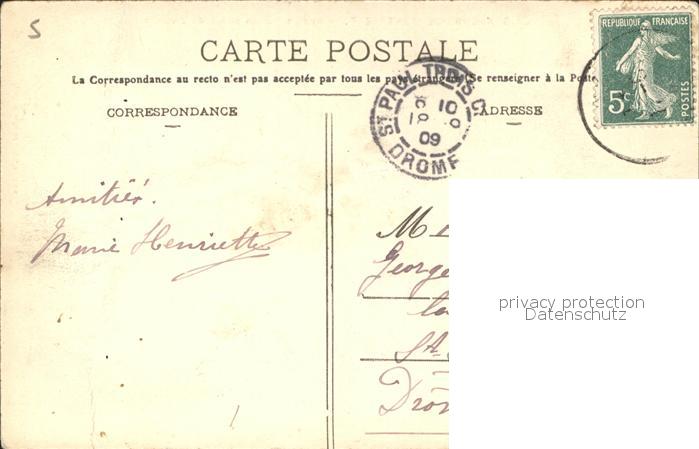 5
CARTE POSTALE
La Correspondance au recto n'est pas acceptée par tous les pays étrangers (Se renseigner à la Poste
CORRESPONDANCE
ADRESSE
REPUBLIQUE FRANÇAISE
5c
POSTES
ST PAUL TROIS C.
10
09
DROME
Amitiés.
Marie Henriette
George
St
Drôm
privacy protection
Datenschutz